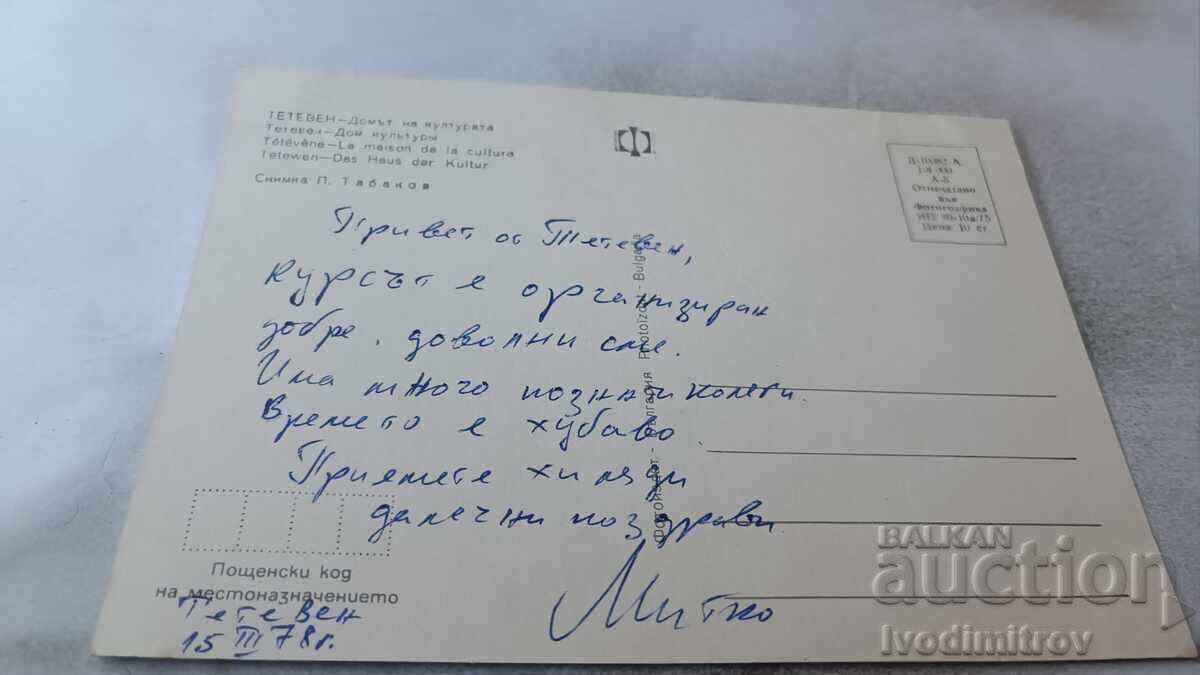 ТЕТЕВЕН—Домът на културата
Тетевен—Дом культуры
Tétévène—La maison de la cultura
Tetewen—Das Haus der Kultur
Снимка П. Табаков
Отпечатано
във
Фотографика
Цена 10 ст.
Привет от Тетевен,
Курсът е организиран
добре, доволни сме.
Има много познати колеги.
Времето е хубаво.
Приемете хиляди
далечни поздрави
Митко
България Photoizdat - Bulgaria
Пощенски код
на местоназначението
Тетевен
15 III 78 г.
BALKAN
auction
Ivodimitrov